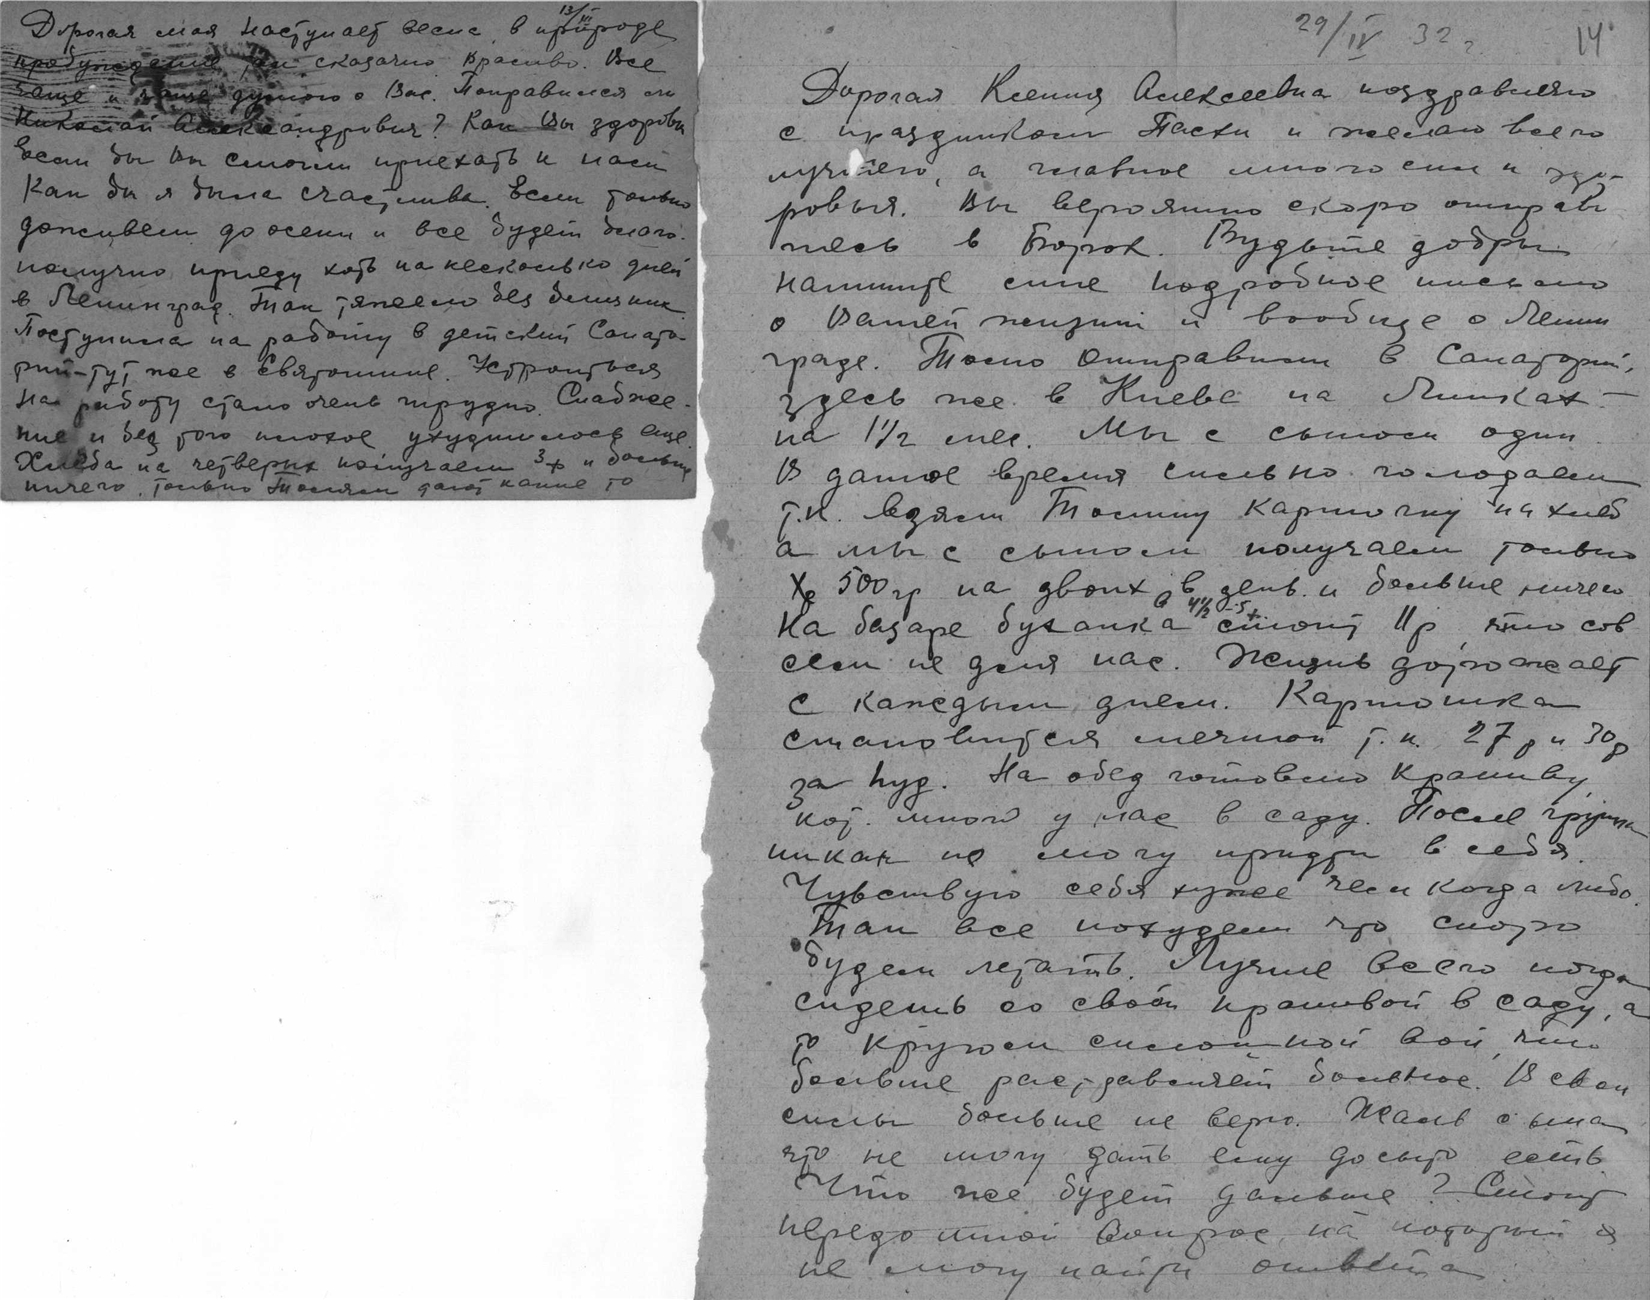 13/III
Дорогая моя наступает весна, в природе
пробуждение, сказочно красиво. Все
чаще и чаще думаю о Вас. Поправился ли
Николай Александрович? Как Вы здоровы
Если бы Вы смогли приехать к нам
Как бы я была счастлива. Если только
доживем до осени и все будет благо-
получно приеду хоть на несколько дней
в Ленинград. Так тяжело без близких
Поступила на работу в детский Санато-
рий-тут же в Святошине. Устроиться
на работу стало очень трудно. Снабже-
ние и без того плохое ухудшилось еще.
Хлеба на четверых получаем 3ф и больше
ничего. Только дают какие то
29/IV 32 г. 14
Дорогая Ксения Алексеевна поздравляю
с праздником Пасхи и желаю всего
лучшего, а главное много сил и здо-
ровья. Вы вероятно скоро отправи
тесь в Борок. Будьте добры
напишите мне подробное письмо
о Вашей жизни и вообще о Ленин
граде. Тосю отправили в Санаторий,
здесь же в Киеве на Липках -
на 1 1/2 мес. Мы с сыном одни.
В данное время сильно голодаем
т.к. взяли Тосину карточку на хлеб
а мы с сыном получаем только
500 гр на двоих в день и больше ничего
На базаре буханка в 4 1/2 - 5ф стоит 11р, что сов
сем не для нас. Жизнь дорожает
с каждым днем. Картошка
становится мечтой т.к. 27р и 30р
за пуд. На обед готовлю крапиву,
кот. много у нас в саду. После гриппа
никак не могу придти в себя.
Чувствую себя хуже чем когда либо.
Так все похудели что скоро
будем летать. Лучше всего когда
сидешь со своей крапивой в саду, а
то кругом сплошной вой, что
больше раздавляет больное. В свои
силы больше не верю. Жаль сына
что не могу дать ему досыта есть
Что же будет дальше? Стоит
передо мной вопрос, на который я
не могу найти ответа